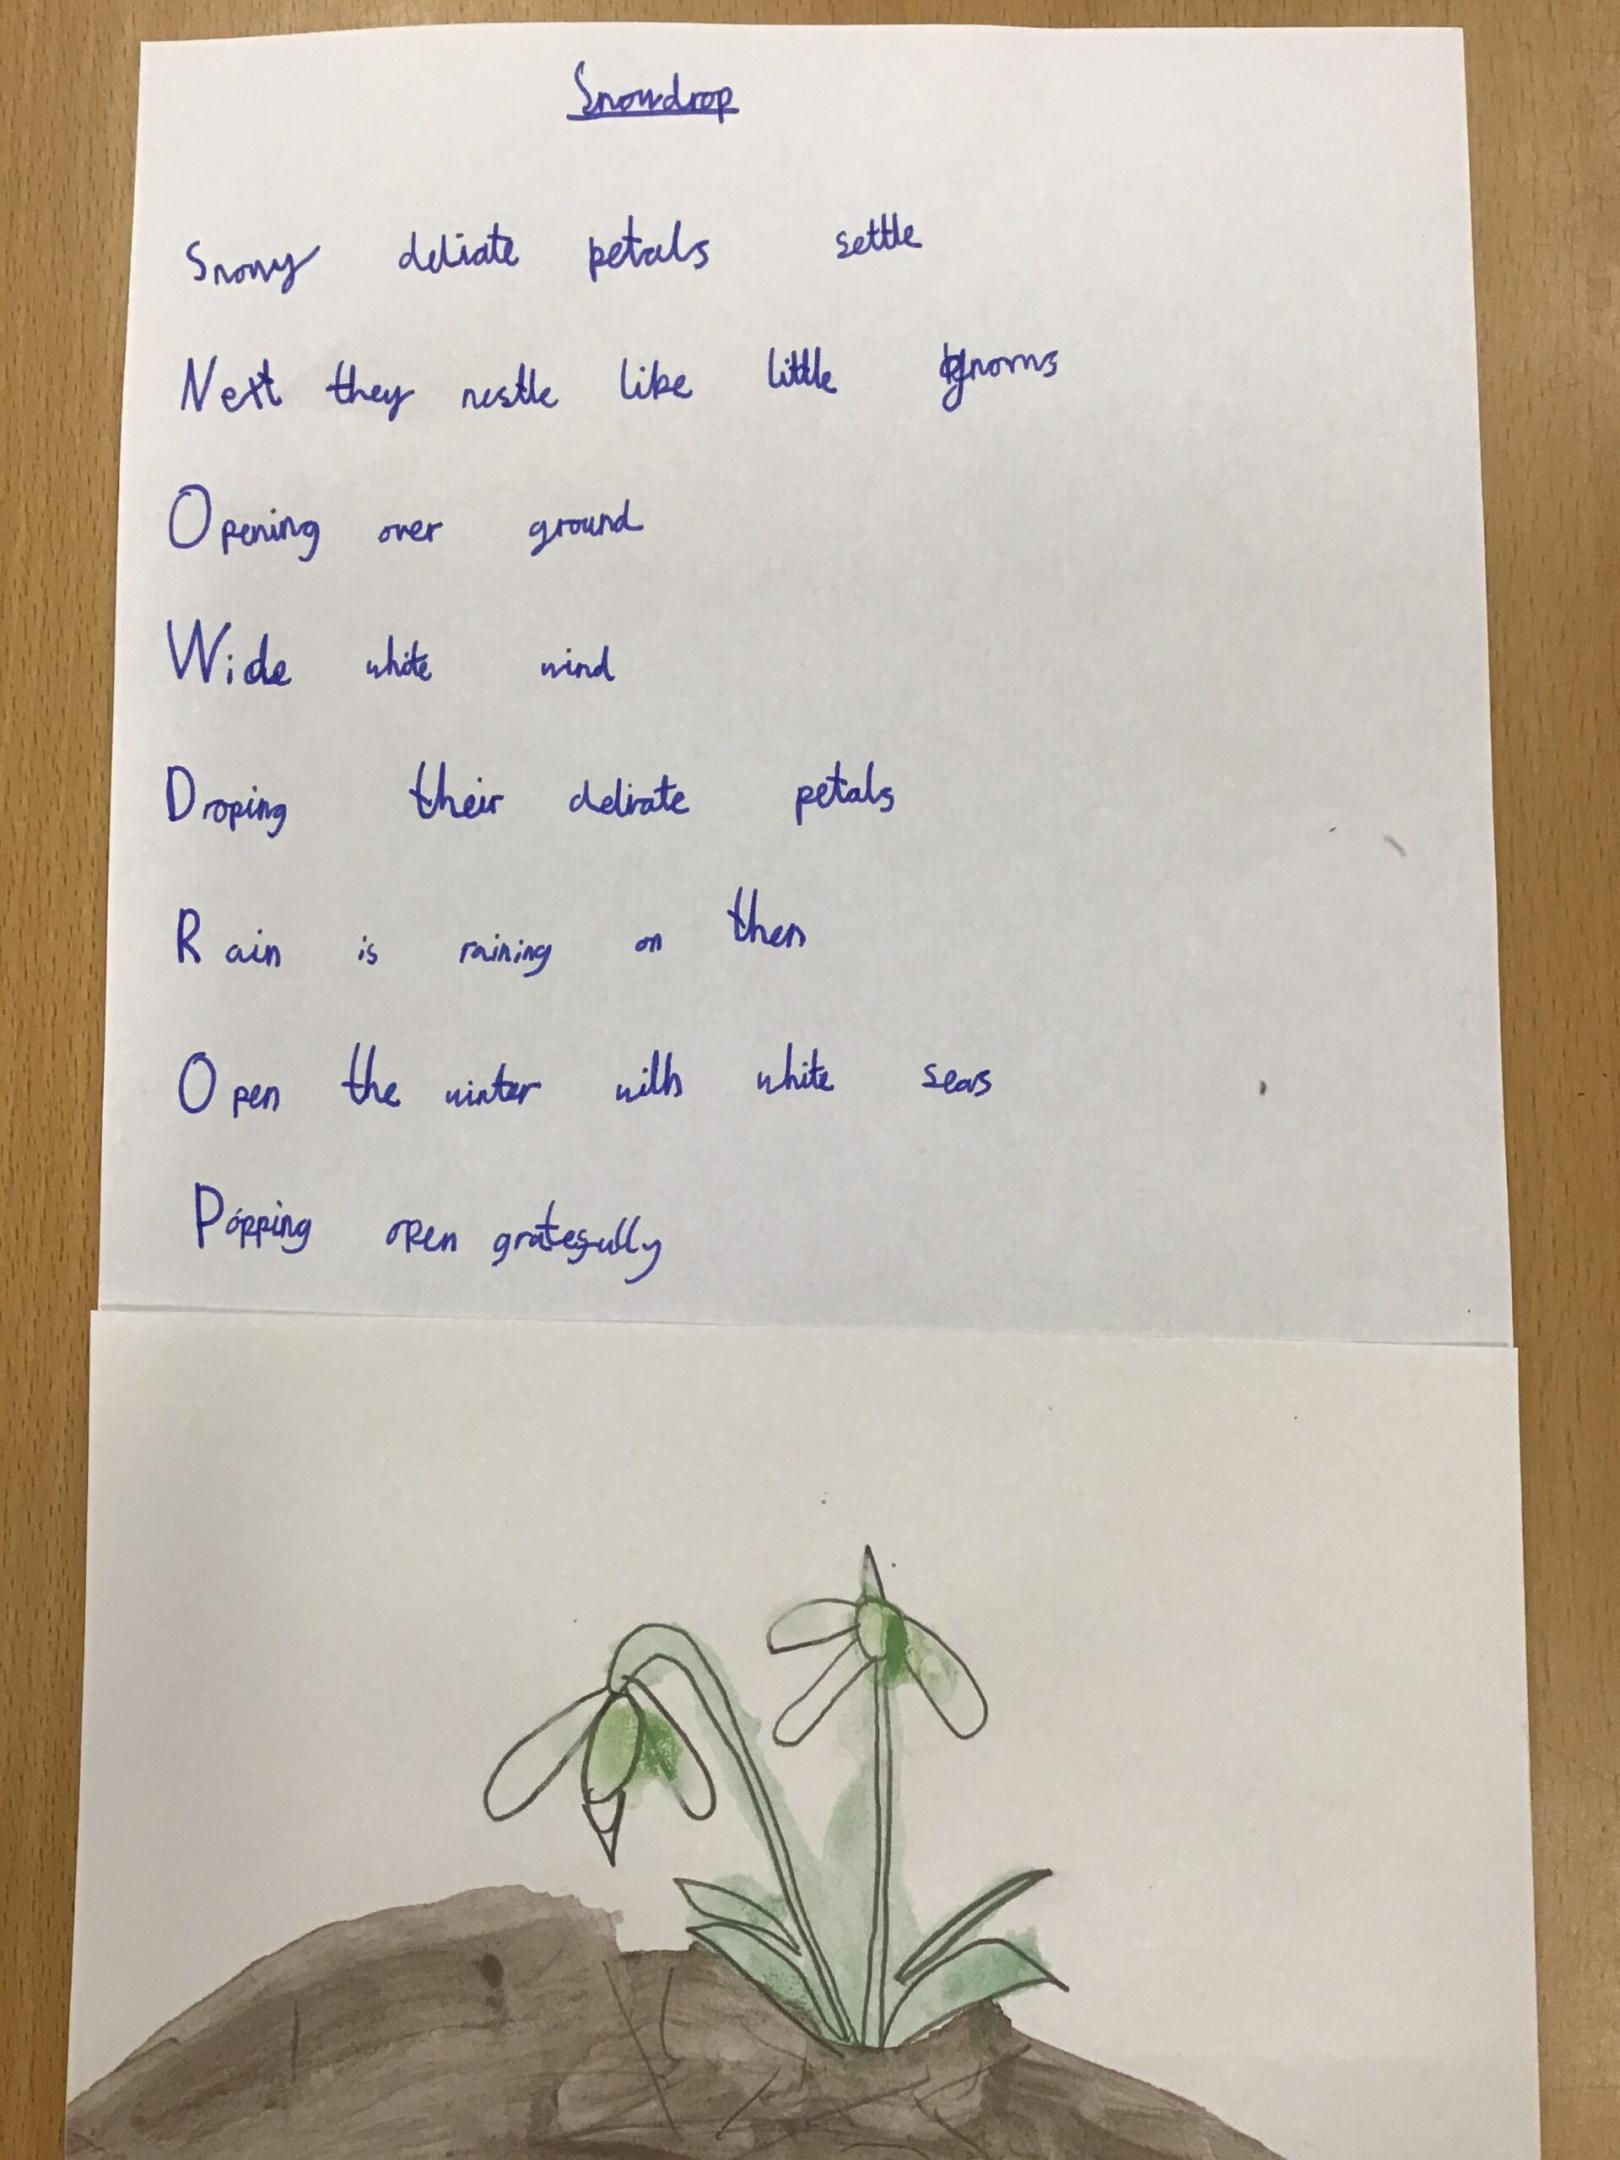 Snowdrop
Snowy deliate petals settle
Next they nestle like little gnoms
Opening over ground
Wide white wind
Droping their delicate petals
Rain is raining on then
Open the winter with white seas
Popping open gratefully